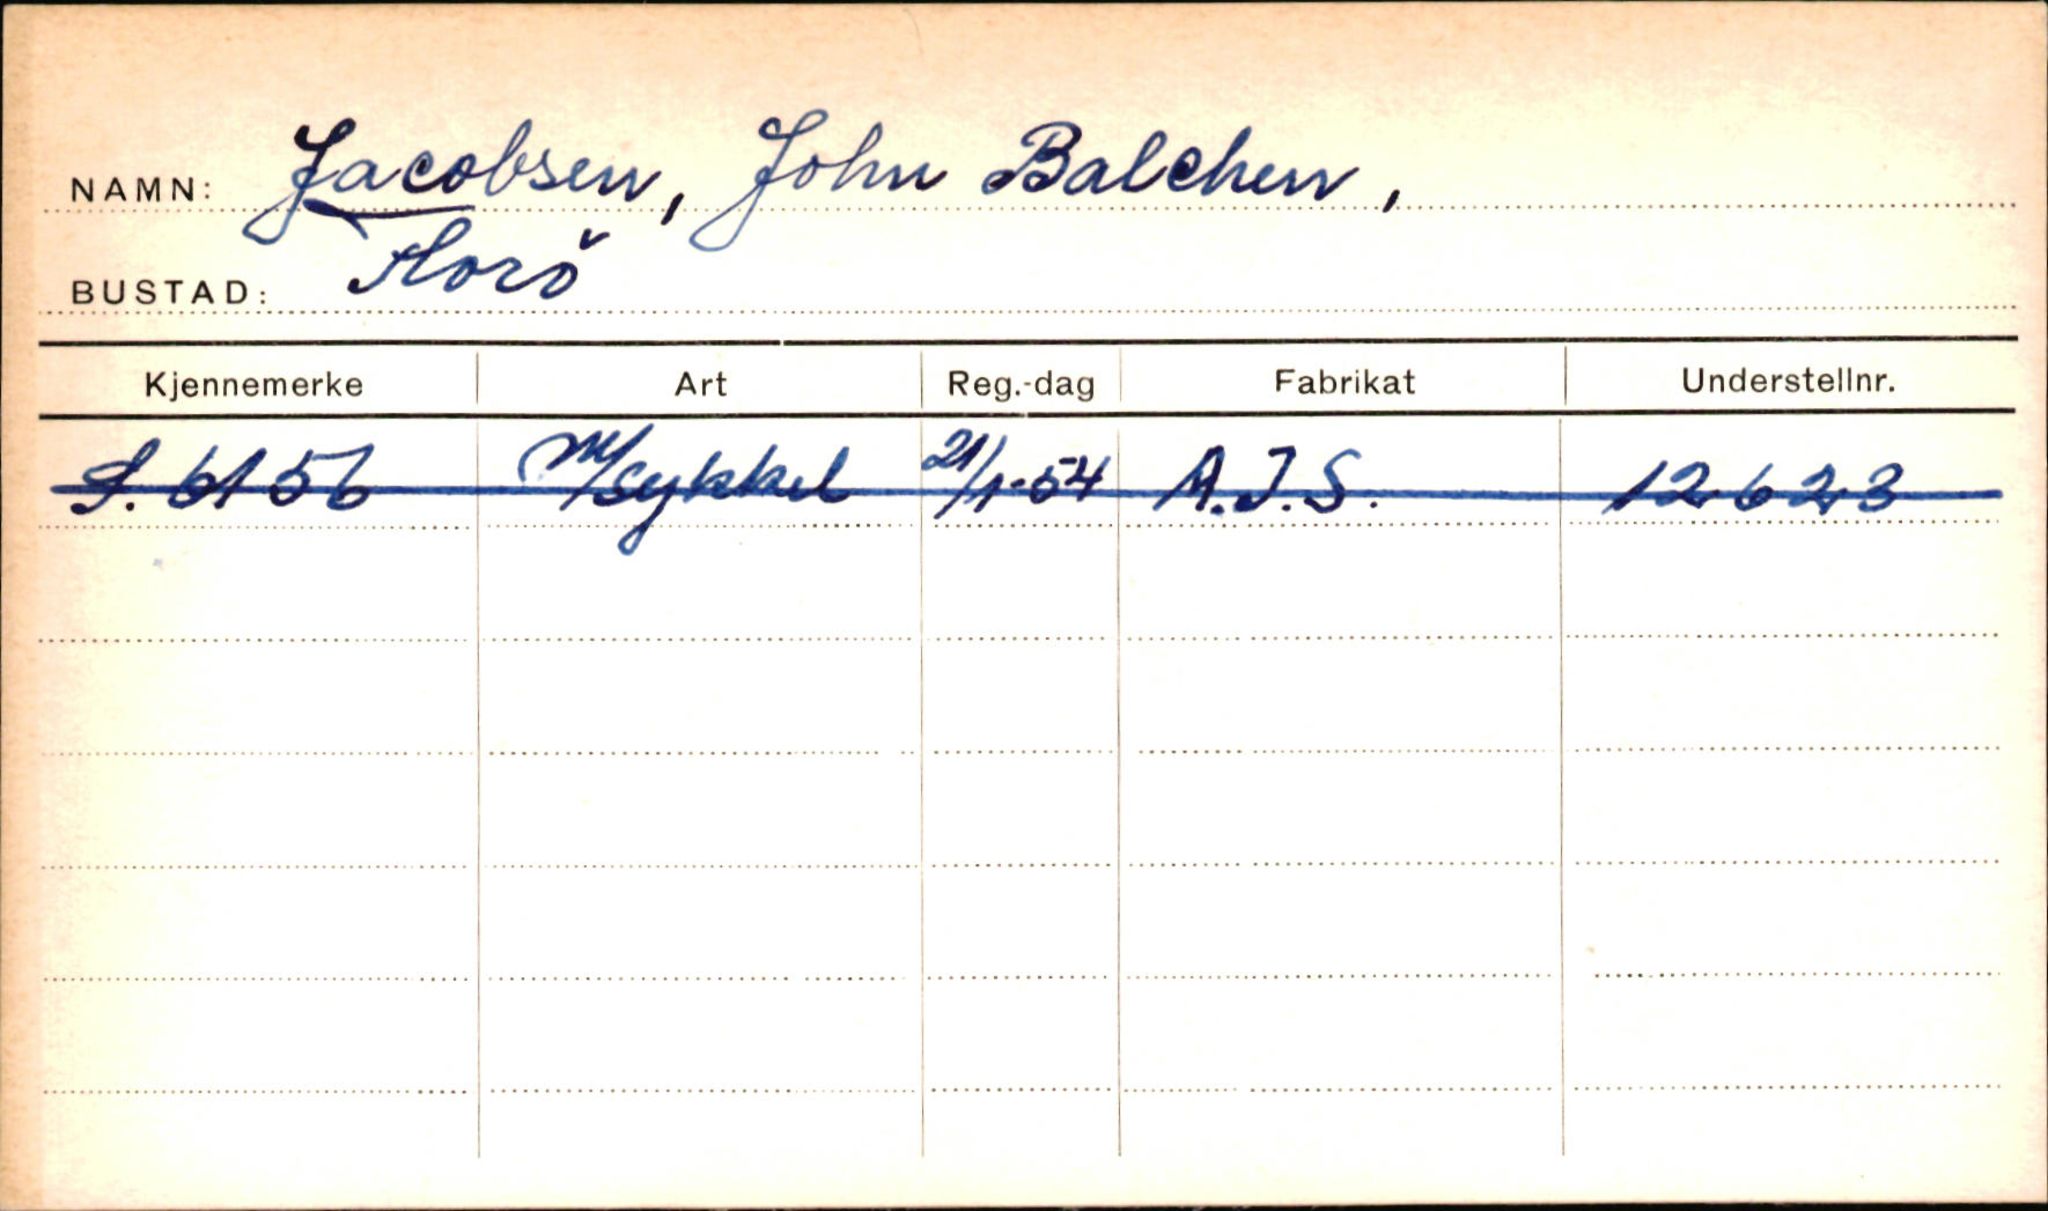 NAMN: Jacobsen, John Balchen,
BUSTAD: Florö
Kjennemerke Art Reg.-dag Fabrikat Understellnr.
S. 6156 M/sykkel 21/1-54 A.J.S. 12623